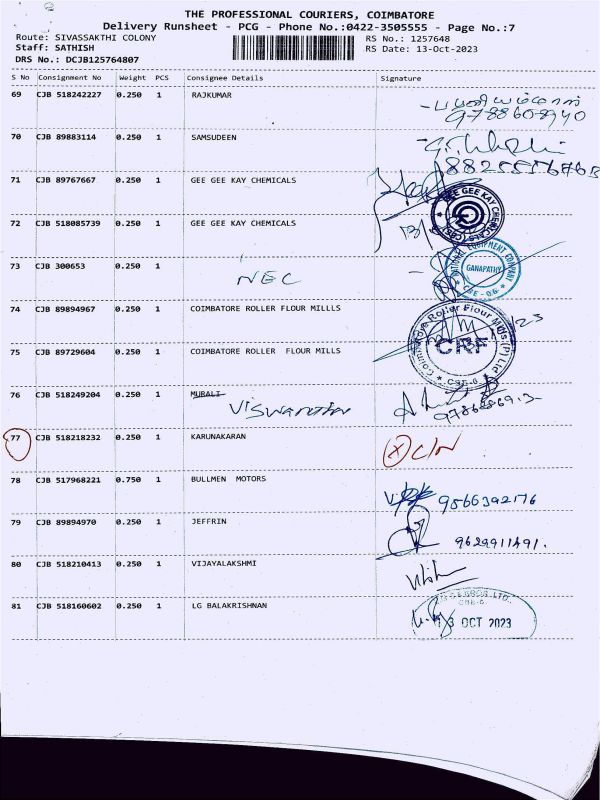 THE PROFESSIONAL COURIERS, COIMBATORE
Delivery Runsheet - PCG - Phone No.:0422-3505555 - Page No.:7
Route: SIVASSAKTHI COLONY RS No.: 1257648
Staff: SATHISH RS Date: 13-Oct-2023
DRS No.: DCJB125764807
S No Consignment No Weight PCS Consignee Details Signature
69 CJB 518242227 0.250 1 RAJKUMAR
9788608940
70 CJB 89883114 0.250 1 SAMSUDEEN
71 CJB 89767667 0.250 1 GEE GEE KAY CHEMICALS
GEE GEE KAY CHEMICALS
72 CJB 518085739 0.250 1 GEE GEE KAY CHEMICALS
73 CJB 300653 0.250 1 NEC
NATIONAL EQUIPMENT COMPANY
GANAPATHY
CBE - 06
74 CJB 89894967 0.250 1 COIMBATORE ROLLER FLOUR MILLLS
Coimbatore Roller Flour Mills (P) Ltd
CRF
CBE-6
75 CJB 89729604 0.250 1 COIMBATORE ROLLER FLOUR MILLS
76 CJB 518249204 0.250 1 MURALI
77 CJB 518218232 0.250 1 KARUNAKARAN
X C/N
78 CJB 517968221 0.750 1 BULLMEN MOTORS
9566392176
79 CJB 89894970 0.250 1 JEFFRIN
9629911491.
80 CJB 518210413 0.250 1 VIJAYALAKSHMI
81 CJB 518160602 0.250 1 LG BALAKRISHNAN
13 OCT 2023